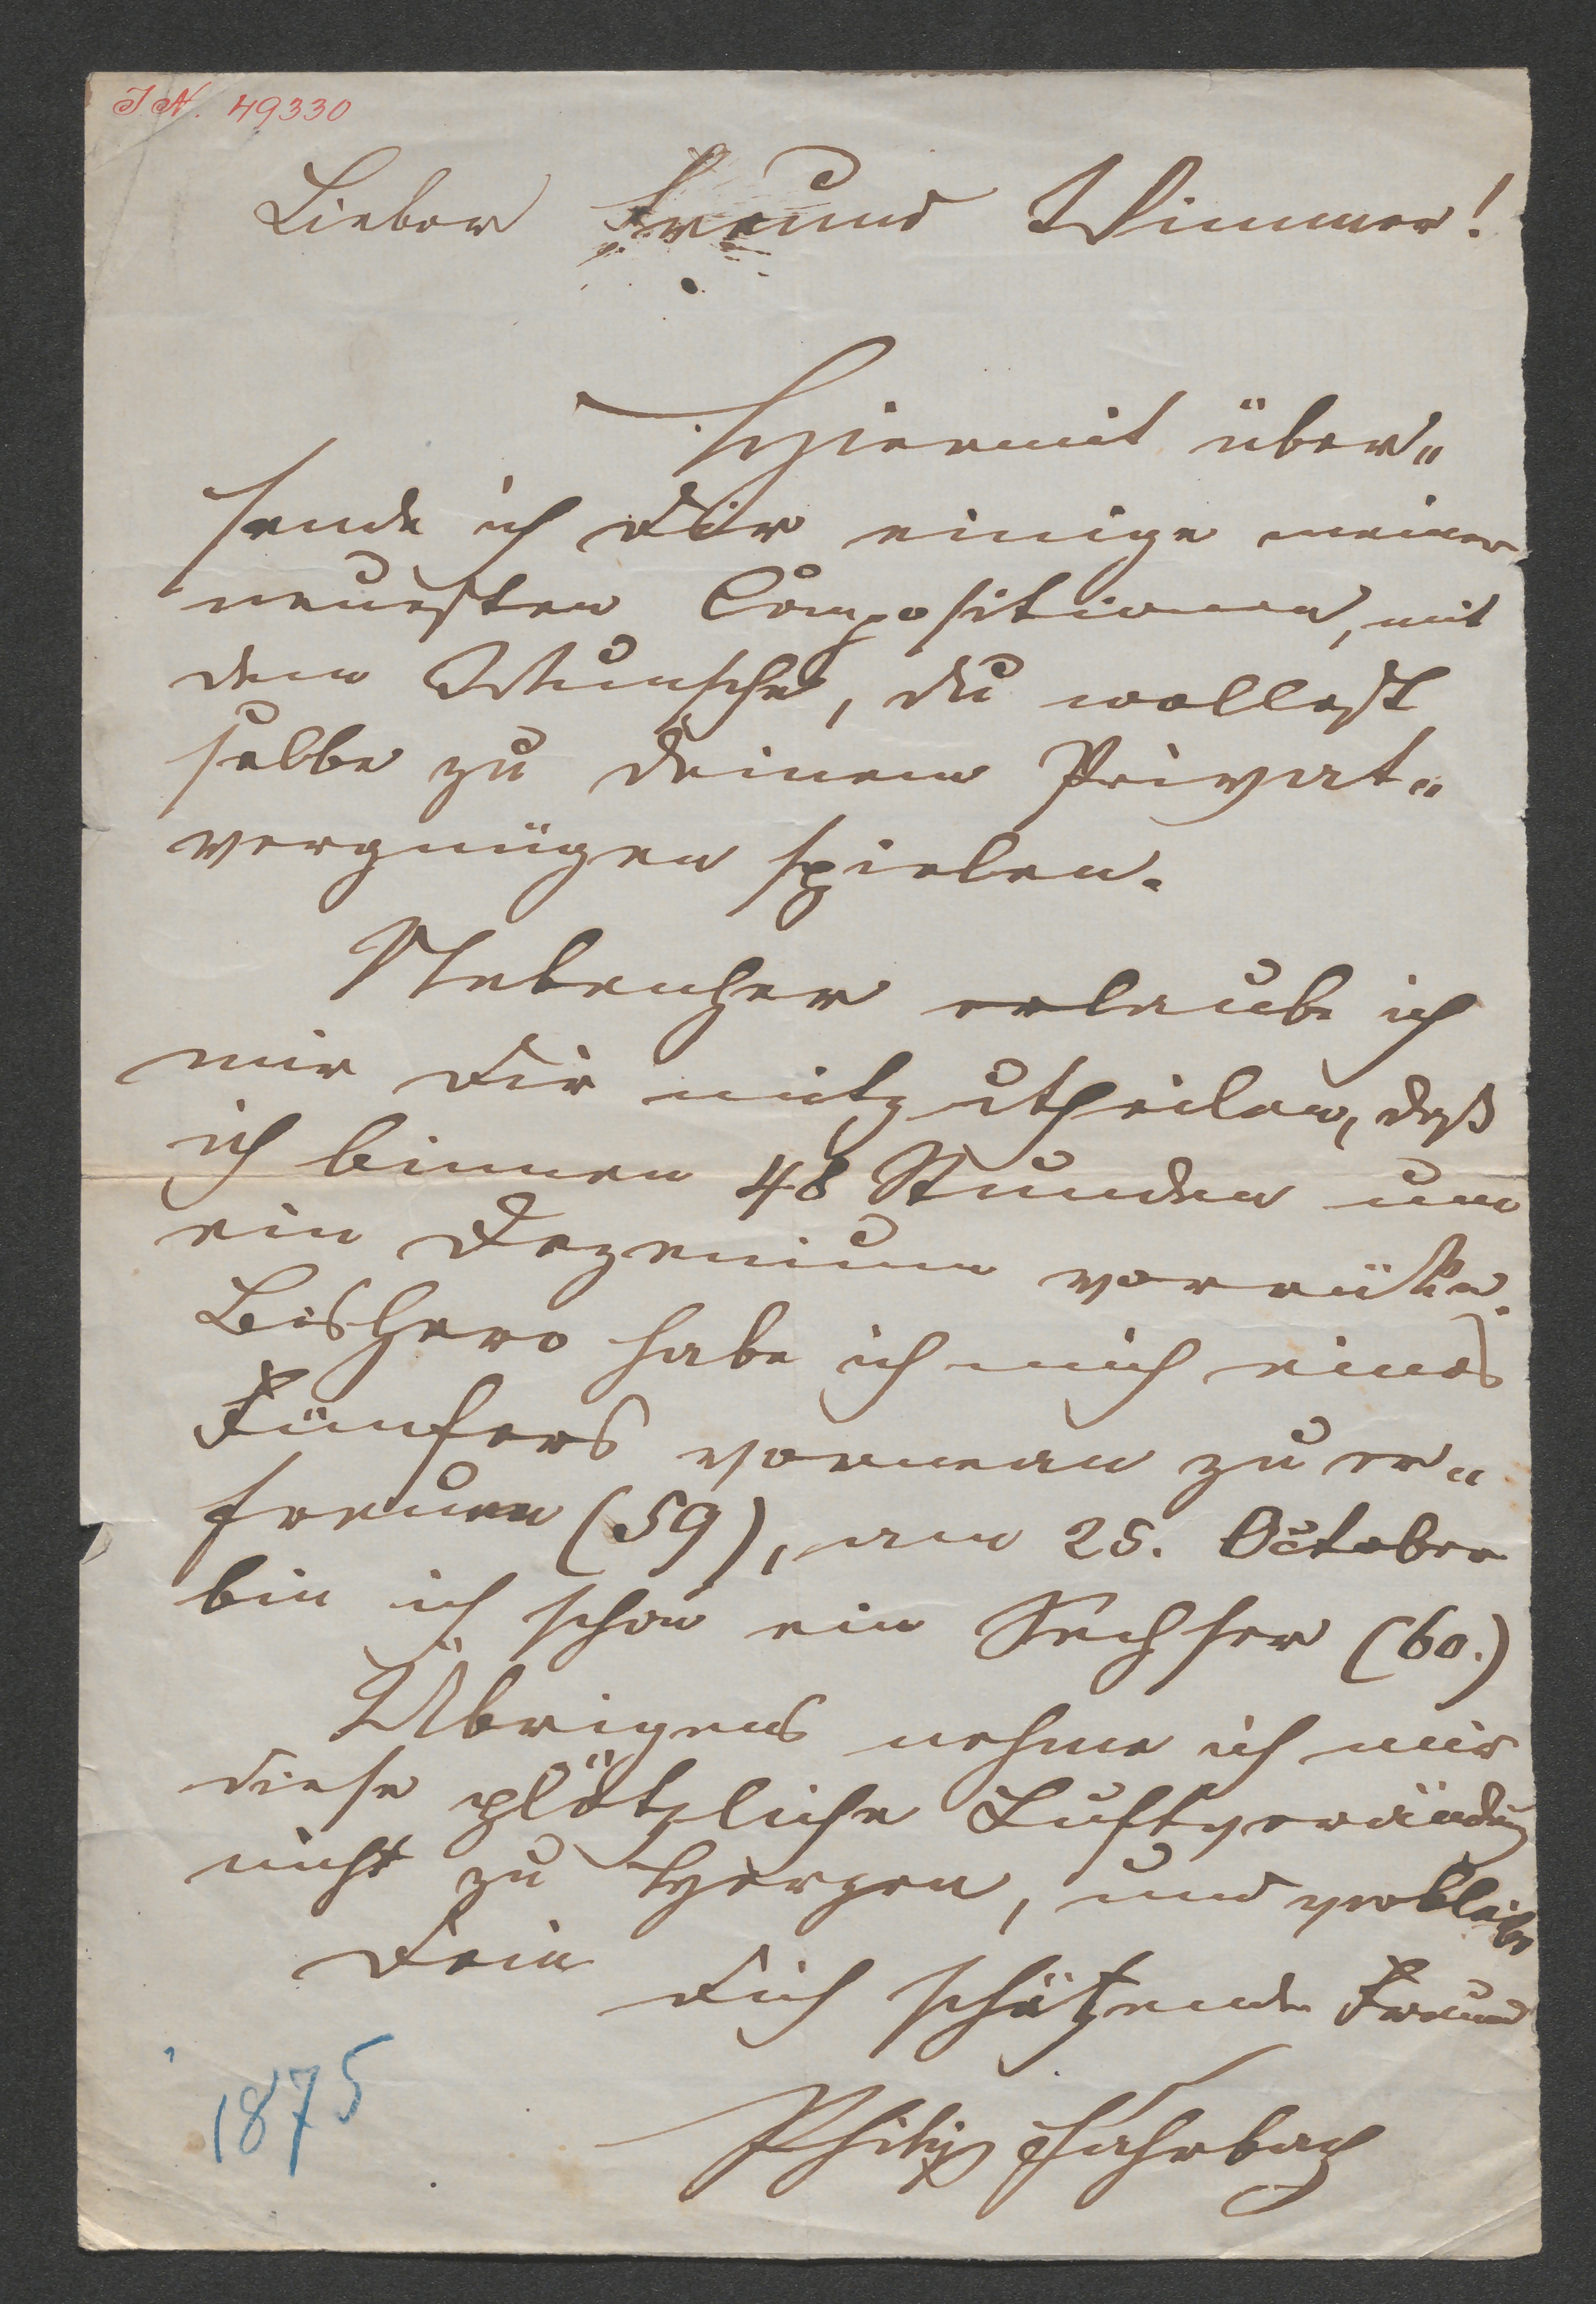 I. N. 49330
Lieber Freund Wimmer!
Hiermit über„
sende ich Dir einige meiner
neuesten Compositionen, mit
dem Wunsche, du wollest
selbe zu deinem Privat„
vergnügen spielen.
Nebenher erlaube ich
mir Dir mitzutheilen, daß
ich binnen 48 Stunden um
ein Dezenium vorrüke.
Bishero habe ich mich eines
Fünfers vornean zu er„
freuen (59), am 25. October
bin ich schon ein Sechser (60.)
Übrigens nehme ich mir
diese plötzliche Luftverändug
nicht zu Herzen, und verbleibe
Dein
Dich schätzender Freund
Philipp Fahrbach
1875